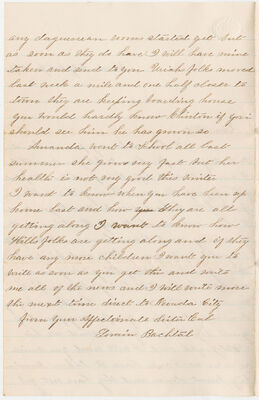 any daguerean rooms started yet but
as soon as they do have I will have mine
taken and send to you Uriah folks moved
last week a mile and one half closer to
town they are keeping boarding house
you would hardly know Clinton if you
should see him he has grown so
Amanda went to school all last
summer she grows very fast but her
health is not very good this winter
I want to know when you have been up
home last and how they are all
getting along I want to know how
Wills folks are getting along and if they
have any more children I want you to
write as soon as you get this and write
me all of the news and I will write more
the next time direct to City
from your affectionate sister Cal
Bachtal